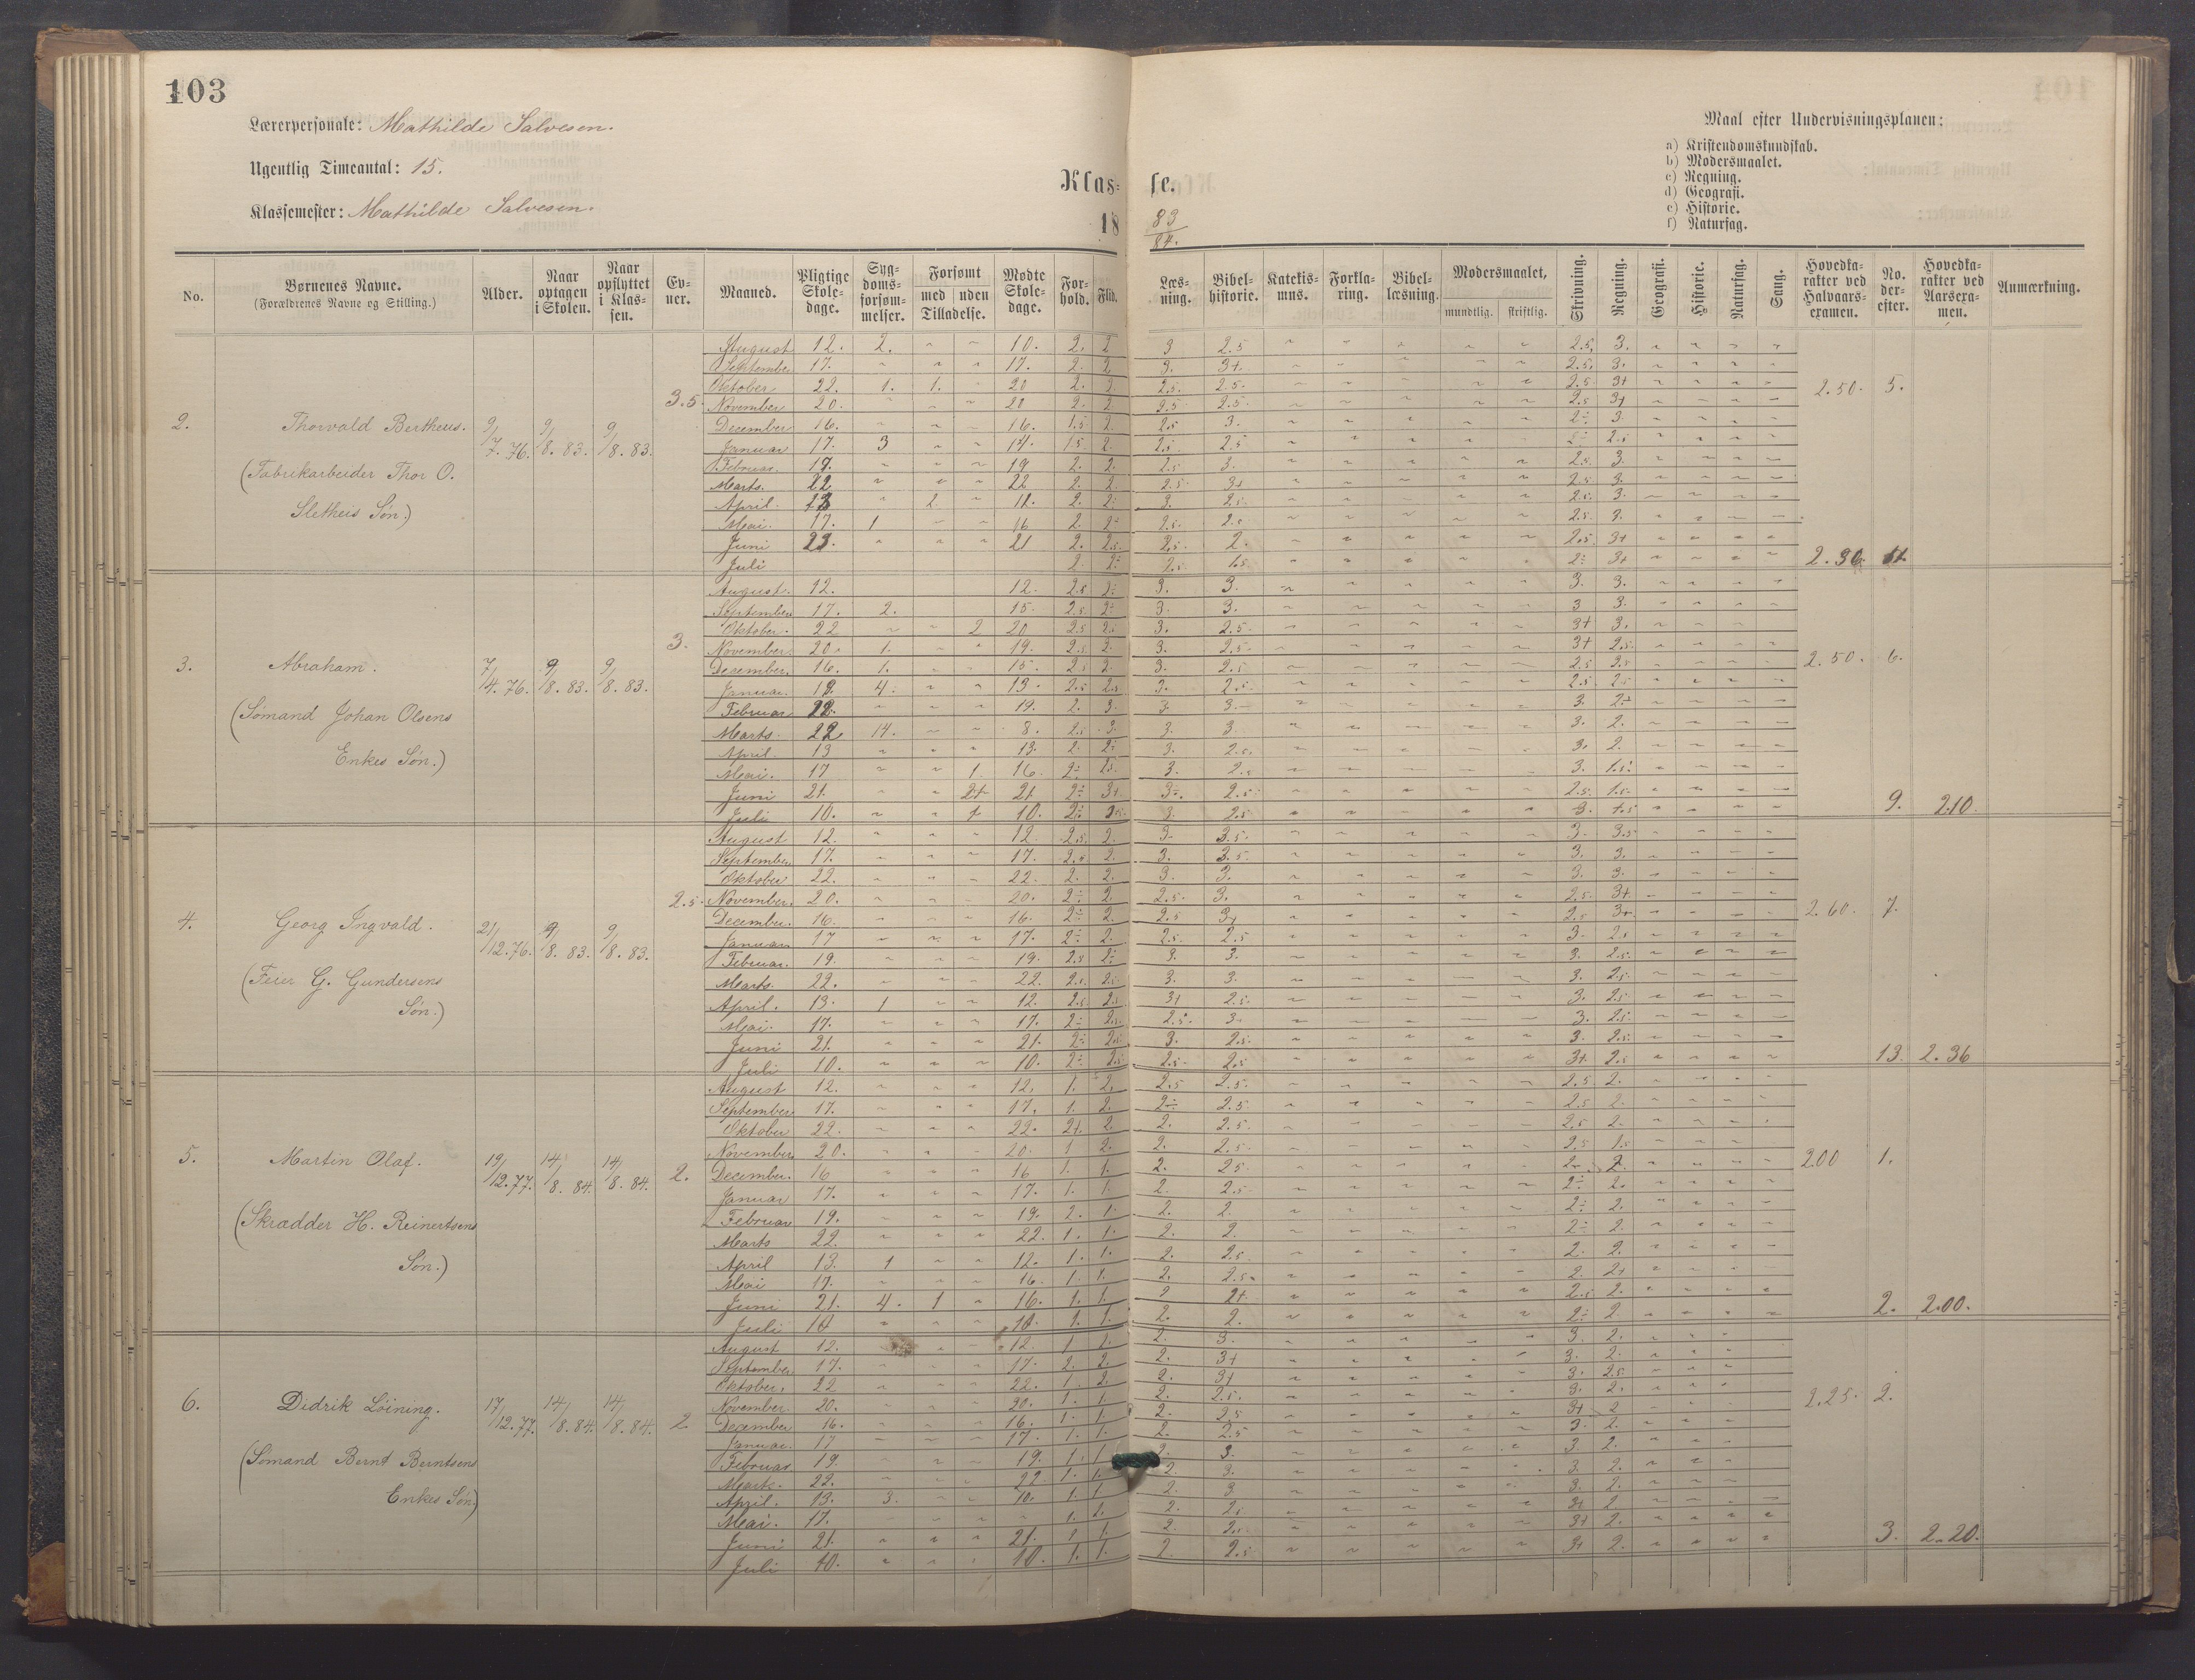 103
Lærerpersonale: Mathilde Salvesen.
Ugentlig Timeantal: 15.
Klassemester: Mathilde Salvesen.
Klas= se.
18 83/84.
Maal efter Undervisningsplanen:
a) Kristendomskundskab.
b) Modersmaalet.
c) Regning.
d) Geografi.
e) Historie.
f) Naturfag.
No. Børnenes Navne. (Forældrenes Navne og Stilling.) Alder. Naar optagen i Skolen. Naar opflyttet i Klas-sen. Ev-ner. Maaned. Pligtige Skole-dage. Syg-doms-forsøm-melser. Forsømt med uden Tilladelse. Mødte Skole-dage. For-hold. Flid. Læs-ning. Bibel-historie. Katekis-mus. Forkla-ring. Bibel-læsning. Modersmaalet, mundtlig. skriftlig. Skrivning. Regning. Geografi. Historie. Naturfag. Sang. Hovedka-rakter ved Halvaars-examen. No. der-efter. Hovedka-rakter ved Aarsexa-men. Anmærkning.
2. Thorvald Bertheus. 9/7. 76. 9/8. 83. 9/8. 83. 3.5
(Fabrikarbeider Thor O.
Sletheis Søn.)
August 12. 2. 10. 2. 2 3 2.5 2.5 3.
September 17. 17. 2. 2 3. 3+ 2.5 3.
Oktober 22. 1. 1. 20 2. 2.5 2.5 2.5 3+ 2.50. 5.
November 20. 20 2. 2. 2.5 2.5 2.5 3+
December 16. 16. 1.5 2. 2.5 3. 3.
Januar 17. 3 14. 2. 2.5 2.5
Februar. 19. 19 2. 2. 2.5 3. 2.5 3.
Marts. 22 22 2. 2. 2.5 3+ 2.5 3.
April. 13 2. 11. 2. 3. 2.5 2.5 3.
Mai. 17. 1 16 2. 2.5 2.5 2.5 3.
Juni 21 2. 2.5 2.5 2. 2.5 3+
Juli 2.5 1.5 3+ 2.30
3. Abraham. 7/4. 76. 9/8. 83. 9/8. 83. 3.
(Sømand Johan Olsens
Enkes Søn.)
August. 12. 12. 2.5 3. 3. 3. 3.
September 17. 2. 15. 2.5 3. 3. 3 3.
Oktober. 22 2 20 2.5 3. 2.5 3+ 3.
November. 20. 1. 19. 2.5 2. 3. 2.5 3+ 2.5
December. 16. 1. 15. 2.5 2. 3. 2.5 2.5 2.5 2.50. 6.
Januar. 4. 13. 2.5 2.5 3. 2.5 2.5 2.5
Februar 19. 2. 3. 3. 3. 3.
Marts 22 14. 8. 2.5 3. 3. 3. 3. 2.
April. 13 13. 2. 3. 2.5 3. 2.
Mai. 17 1. 16. 3. 2.5 3. 1.5
Juni 21. 21. 2.5 2.5 1.5
Juli 10. 10. 2.5 3. 1.5 9. 2.10.
4. Georg Ingvald. 21/12. 76. 9/8. 83. 9/8. 83. 2.5
(Feier G. Gundersens
Søn.)
August 12. 12 2.5 2. 3 3.5 3. 3.5
September 17. 17. 2.5 2. 3. 3.5 3. 3.
Oktober 22. 22. 2. 2. 3. 3. 3. 3.
November. 20. 20. 2. 2.5 3. 2.5 3+
December. 16. 16. 2. 2.5 3+ 2.5 3+ 2.60. 7.
Januar 17 17. 2. 2.5 2.5 3. 2.5
Februar. 19. 19. 2.5 3. 3. 3. 2.5
Marts. 22. 22. 2.5 2.5 3. 3. 3. 2.5
April. 13. 1 12. 2.5 2.5 3+ 2.5 3. 2.5
Mai. 17. 17. 2.5 2.5 3. 3. 2.5
Juni 21. 21. 2.5 3. 2.5 3. 2.5
Juli 10. 10. 2.5 2.5 2.5 3+ 2.5 13. 2.36
5. Martin Olaf. 19/12. 77. 14/8. 84. 14/8. 84. 2.
(Skrædder H. Reinertsens
Søn.)
August 12. 12. 1. 2. 2.5 2.5 2.5 2.
September 17. 17. 1. 2. 2.5 2.5 2.
Oktober 22. 22. 2+. 2. 2. 2.5 2.5 2.
November 20. 20. 1 2. 2. 2.5 2.5 1.5
December. 16 16 1. 1. 2. 2.5 2. 200 1.
Januar 17. 17. 1. 1. 2. 2.5
Februar 19. 19. 2. 1. 2. 2. 2.
Marts 22. 22. 1. 1. 2. 2. 2.
April 13. 1 12. 1. 1. 2. 2.5 2. 2.
Mai 17. 16. 1. 1. 2. 2.5 2. 2+
Juni 21. 4. 1 16. 1. 1. 2 2+. 2.5 2.
Juli 10 10. 1. 1. 2. 2. 2 2. 2.00.
6. Didrik Löining. 17/12. 77. 14/8. 84. 14/8. 84. 2
(Sømand Bernt Berntsens
Enkes Søn.)
August 12. 12. 1 2. 2. 3. 3. 2.
September 17. 17. 2. 2. 2. 3+ 3. 2.
Oktober. 22 22. 1. 2. 2. 3+ 3. 2.5
November. 20. 20. 1. 1. 2. 2.5 3. 2. 2.25. 2.
December 16. 16. 1. 1. 2. 2.5 3+ 2
Januar. 17 17. 1. 1. 2. 2.5 3. 2.
Februar. 19. 19. 1. 1 2. 3. 3. 2.
Marts. 22. 22 1. 1. 2. 3. 3. 2.
April. 13. 3. 10. 1. 1 2. 3 3. 2.
Mai. 17. 1. 1. 2. 3+ 2.
Juni 21. 21. 1 1. 2. 3+ 2.
Juli 10. 10. 1. 1. 2. 2.5 3+ 2. 3. 2.20.